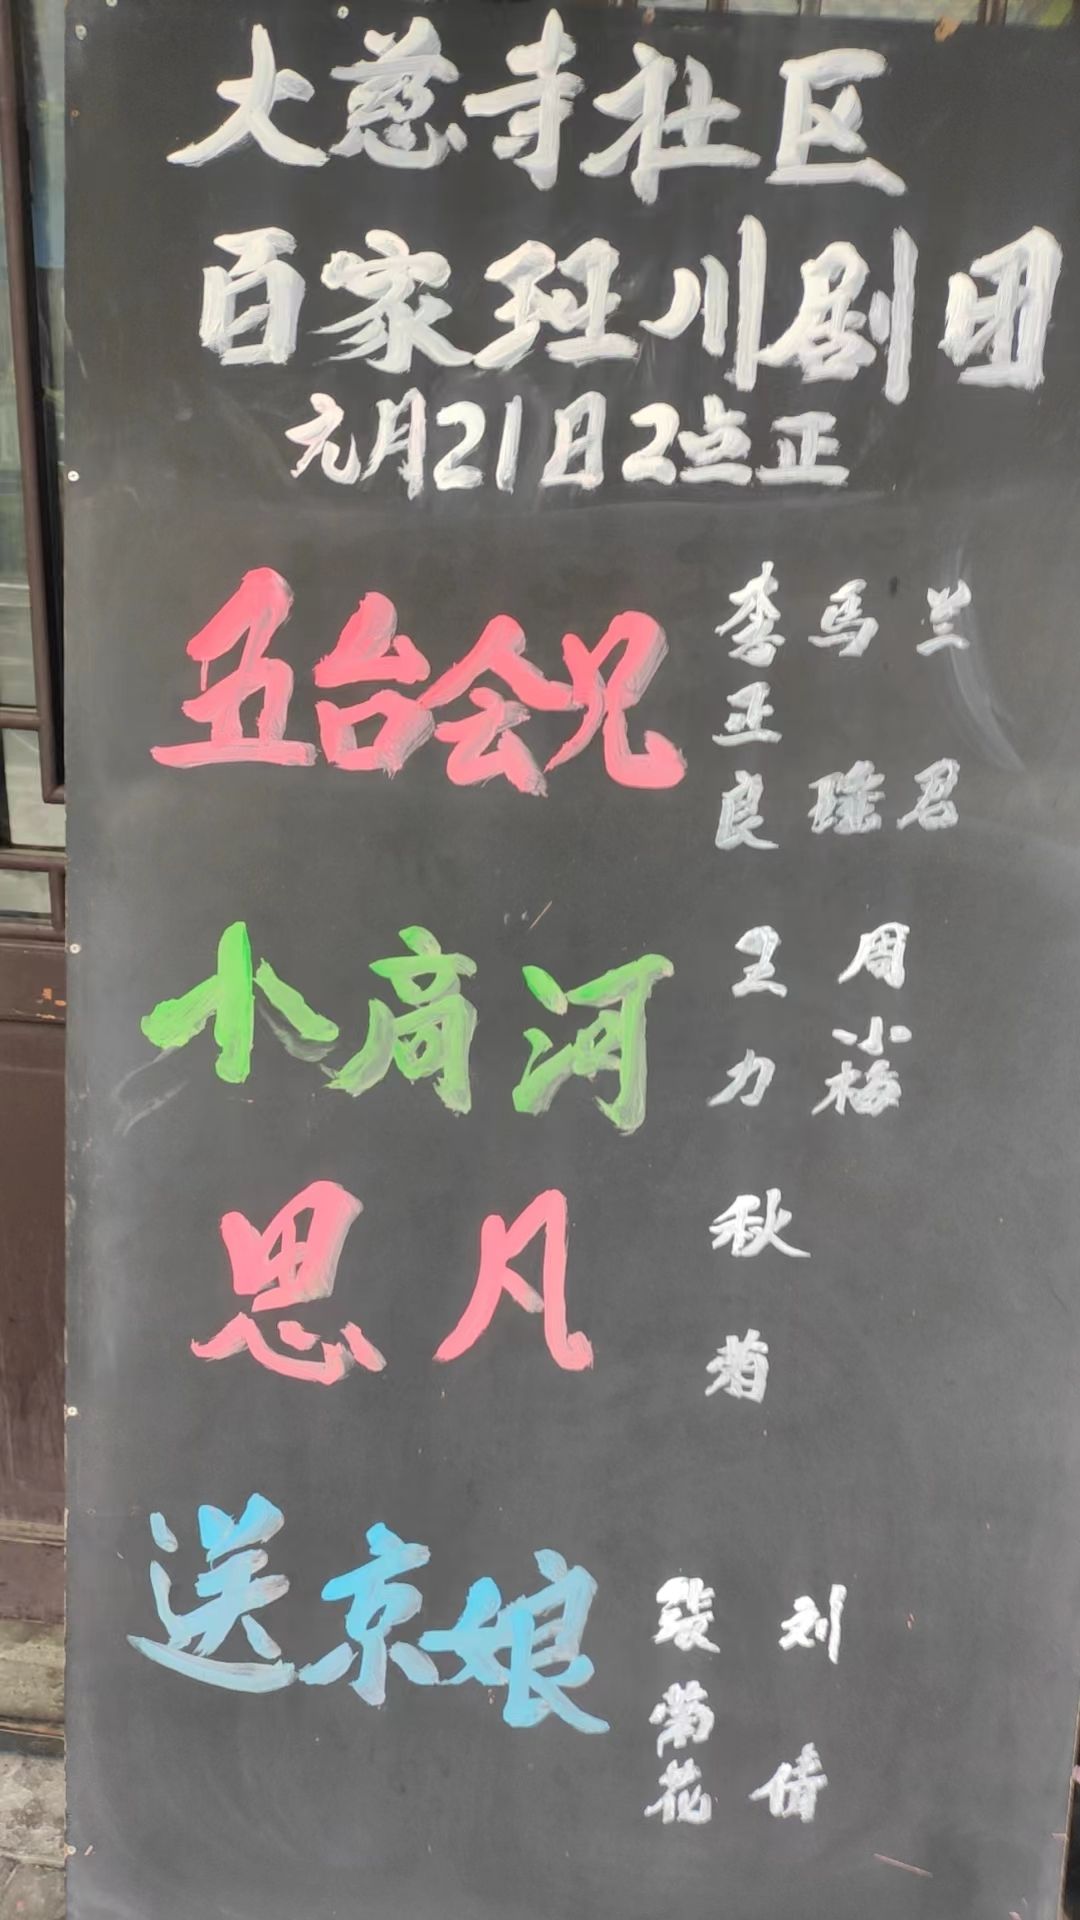 大慈寺社区
百家班川剧团
元月21日2点正
五台会兄 李正良 马瑶 兰君
小商河 王力 周小梅
思凡 秋菊
送京娘 裴菊花 刘倩